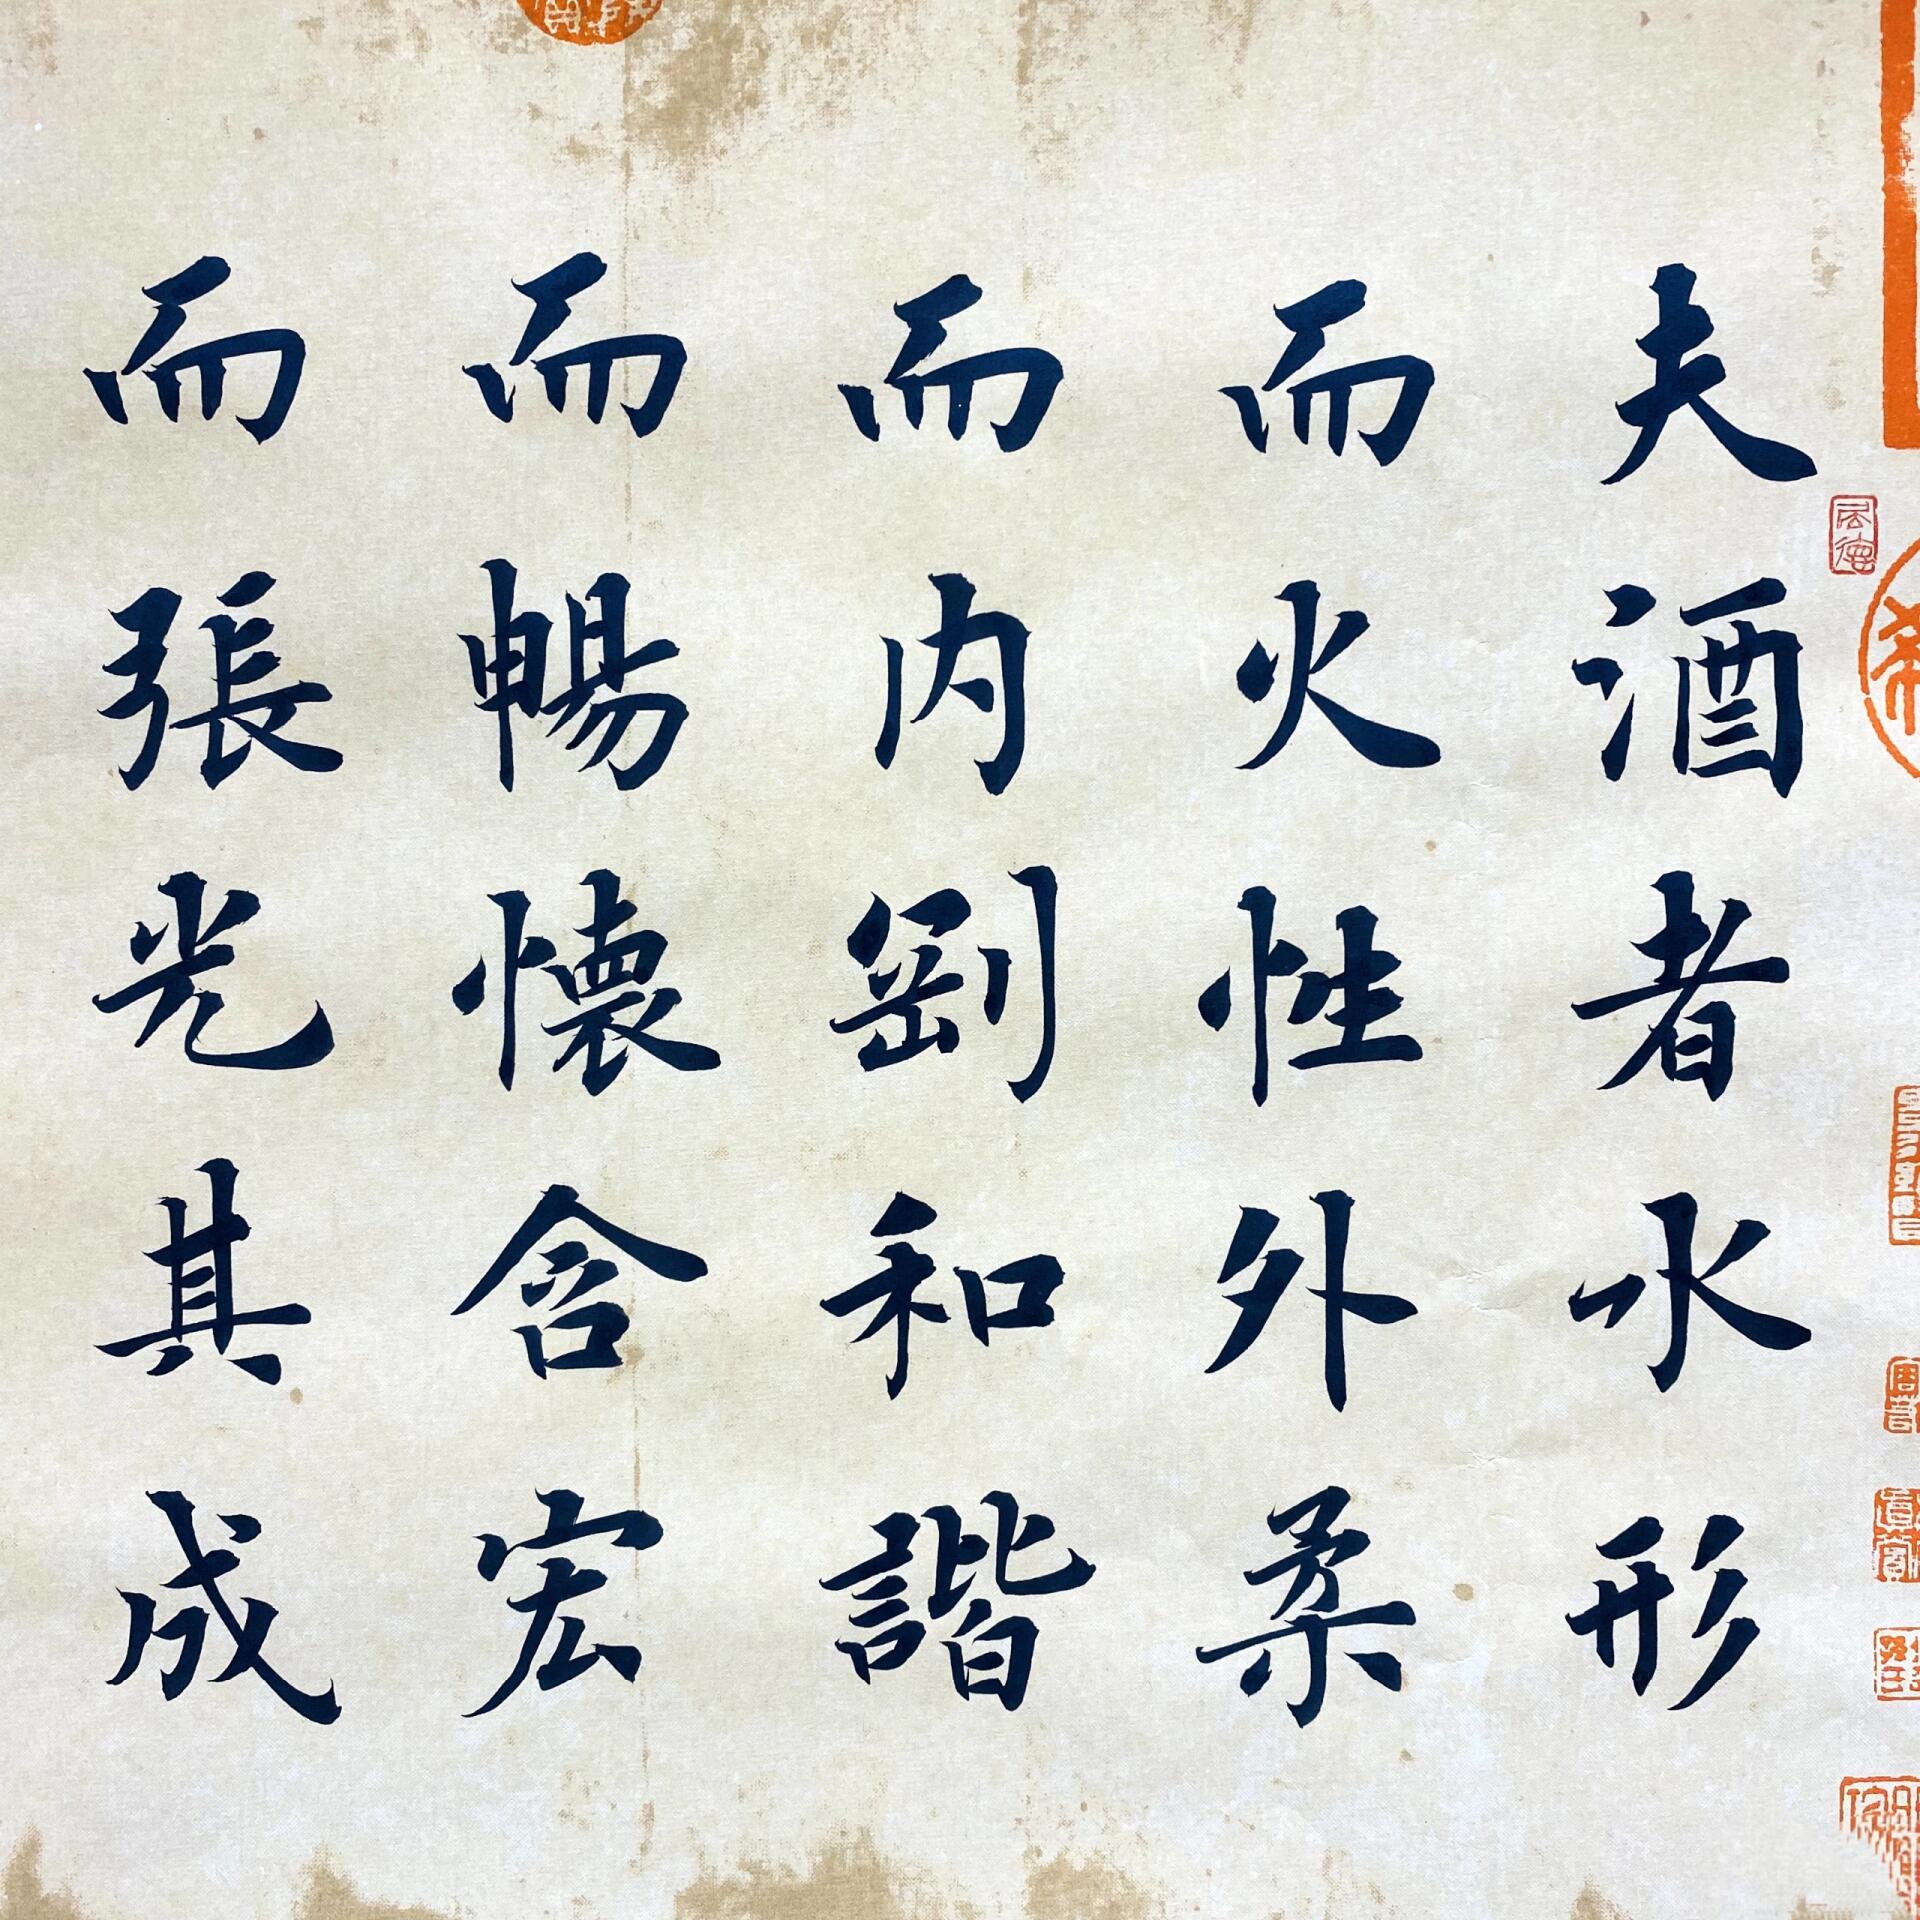 夫酒者水形
而火性外柔
而内剛和諧
而暢懷含宏
而張光其成